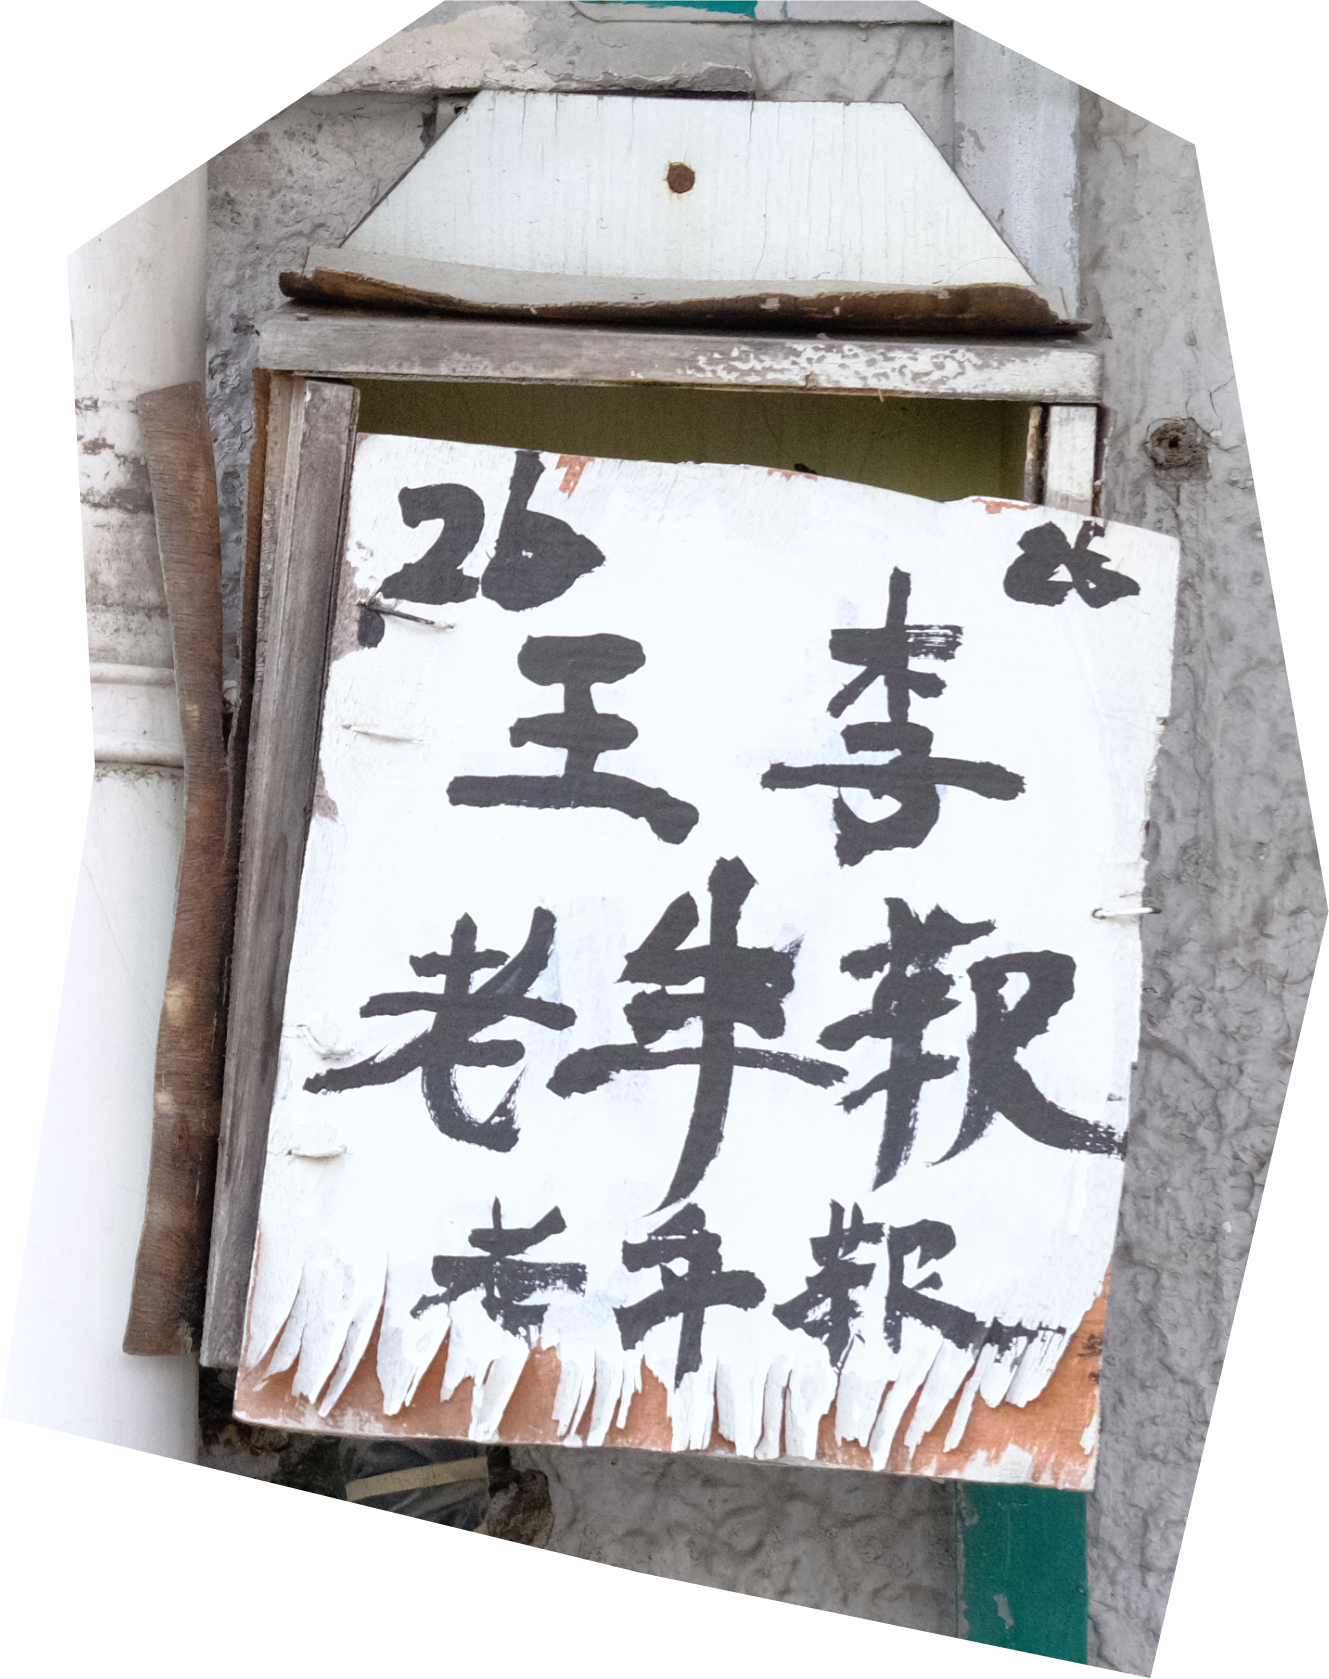 26 26
王 李
老年報
老年報